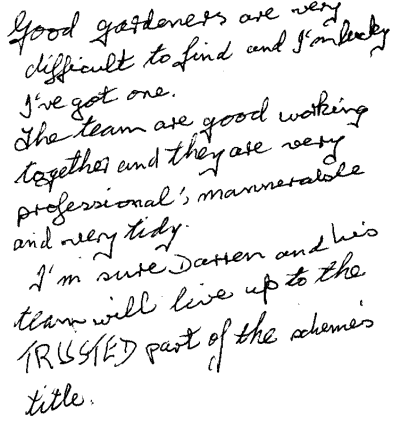 Good gardeners are very
difficult to find and I'm lucky
I've got one.
The team are good working
together and they are very
professional, mannerable
and very tidy.
I'm sure Darren and his
team will live up to the
TRUSTED part of the scheme's
title.